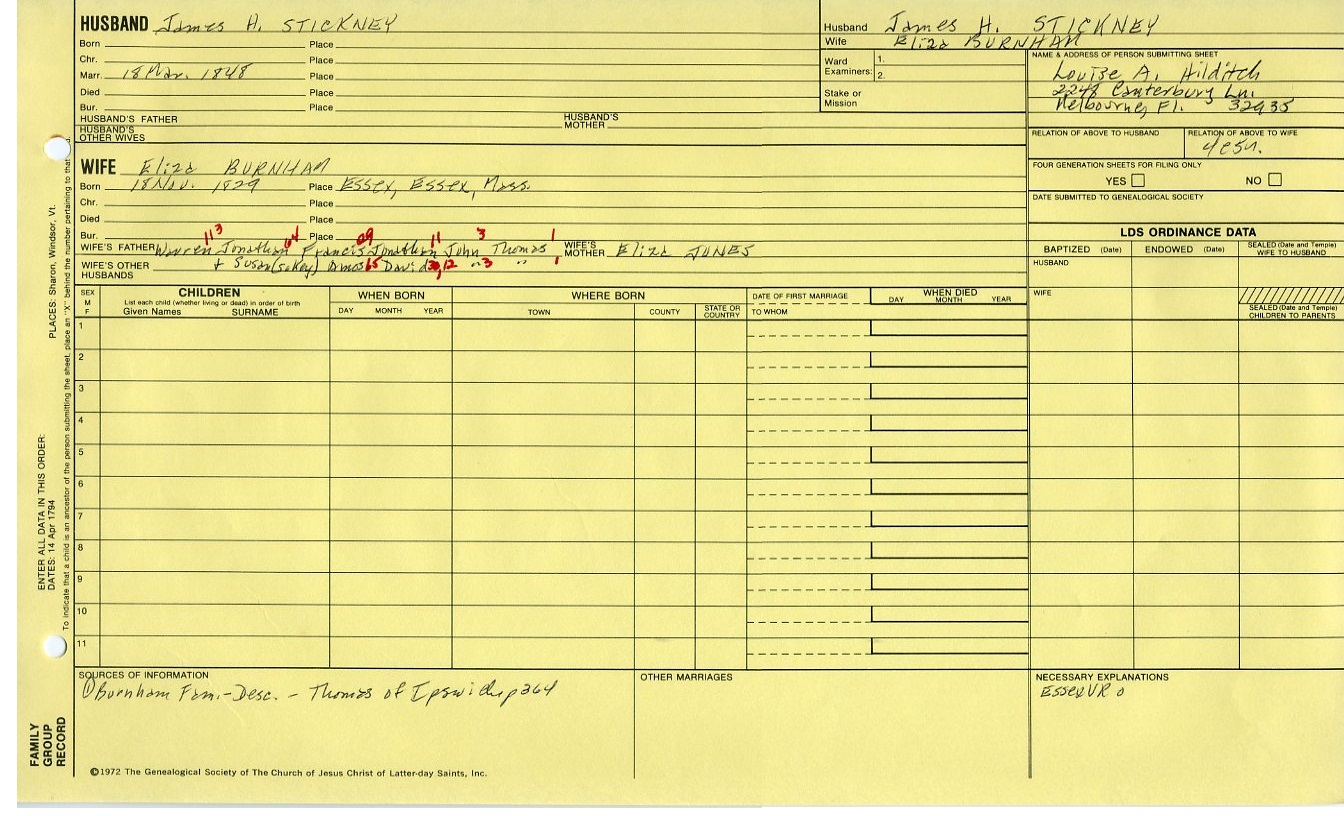 HUSBAND James H. STICKNEY
Born Place
Chr. Place
Marr. 18 Mar. 1848 Place
Died Place
Bur. Place
HUSBAND'S FATHER HUSBAND'S MOTHER
HUSBAND'S OTHER WIVES
Husband James H. STICKNEY
Wife Eliza BURNHAM
Ward Examiners: 1.
2.
Stake or Mission
NAME & ADDRESS OF PERSON SUBMITTING SHEET
Louise A. Hilditch
2248 Canterbury Ln.
Melbourne, Fl. 32935
RELATION OF ABOVE TO HUSBAND RELATION OF ABOVE TO WIFE
FOUR GENERATION SHEETS FOR FILING ONLY
YES NO
DATE SUBMITTED TO GENEALOGICAL SOCIETY
WIFE Eliza BURNHAM
Born 18 Nov. 1829 Place Essex, Essex, Mass.
Chr. Place
Died Place
Bur. Place
113 64 29 11 3 1
WIFE'S FATHER Warren Jonathan Francis Jonathan John Thomas WIFE'S MOTHER Eliza JONES
+ Susan (sukey) Amos 65 David 12 " 3 " 1
WIFE'S OTHER HUSBANDS
LDS ORDINANCE DATA
BAPTIZED (Date) ENDOWED (Date) SEALED (Date and Temple) WIFE TO HUSBAND
HUSBAND
WIFE
SEALED (Date and Temple) CHILDREN TO PARENTS
SEX M F
CHILDREN
List each child (whether living or dead) in order of birth
Given Names SURNAME
WHEN BORN
DAY MONTH YEAR
WHERE BORN
TOWN COUNTY STATE OR COUNTRY
DATE OF FIRST MARRIAGE
TO WHOM
WHEN DIED
DAY MONTH YEAR
1
2
3
4
5
6
7
8
9
10
11
SOURCES OF INFORMATION
① Burnham Fam.-Desc. - Thomas of Ipswich p 364
OTHER MARRIAGES
NECESSARY EXPLANATIONS
Essex VR
©1972 The Genealogical Society of The Church of Jesus Christ of Latter-day Saints, Inc.
FAMILY GROUP RECORD
ENTER ALL DATA IN THIS ORDER:
DATES: 14 Apr 1794
PLACES: Sharon, Windsor, Vt.
To indicate that a child is an ancestor of the person submitting the sheet, place an "X" behind the number pertaining to that